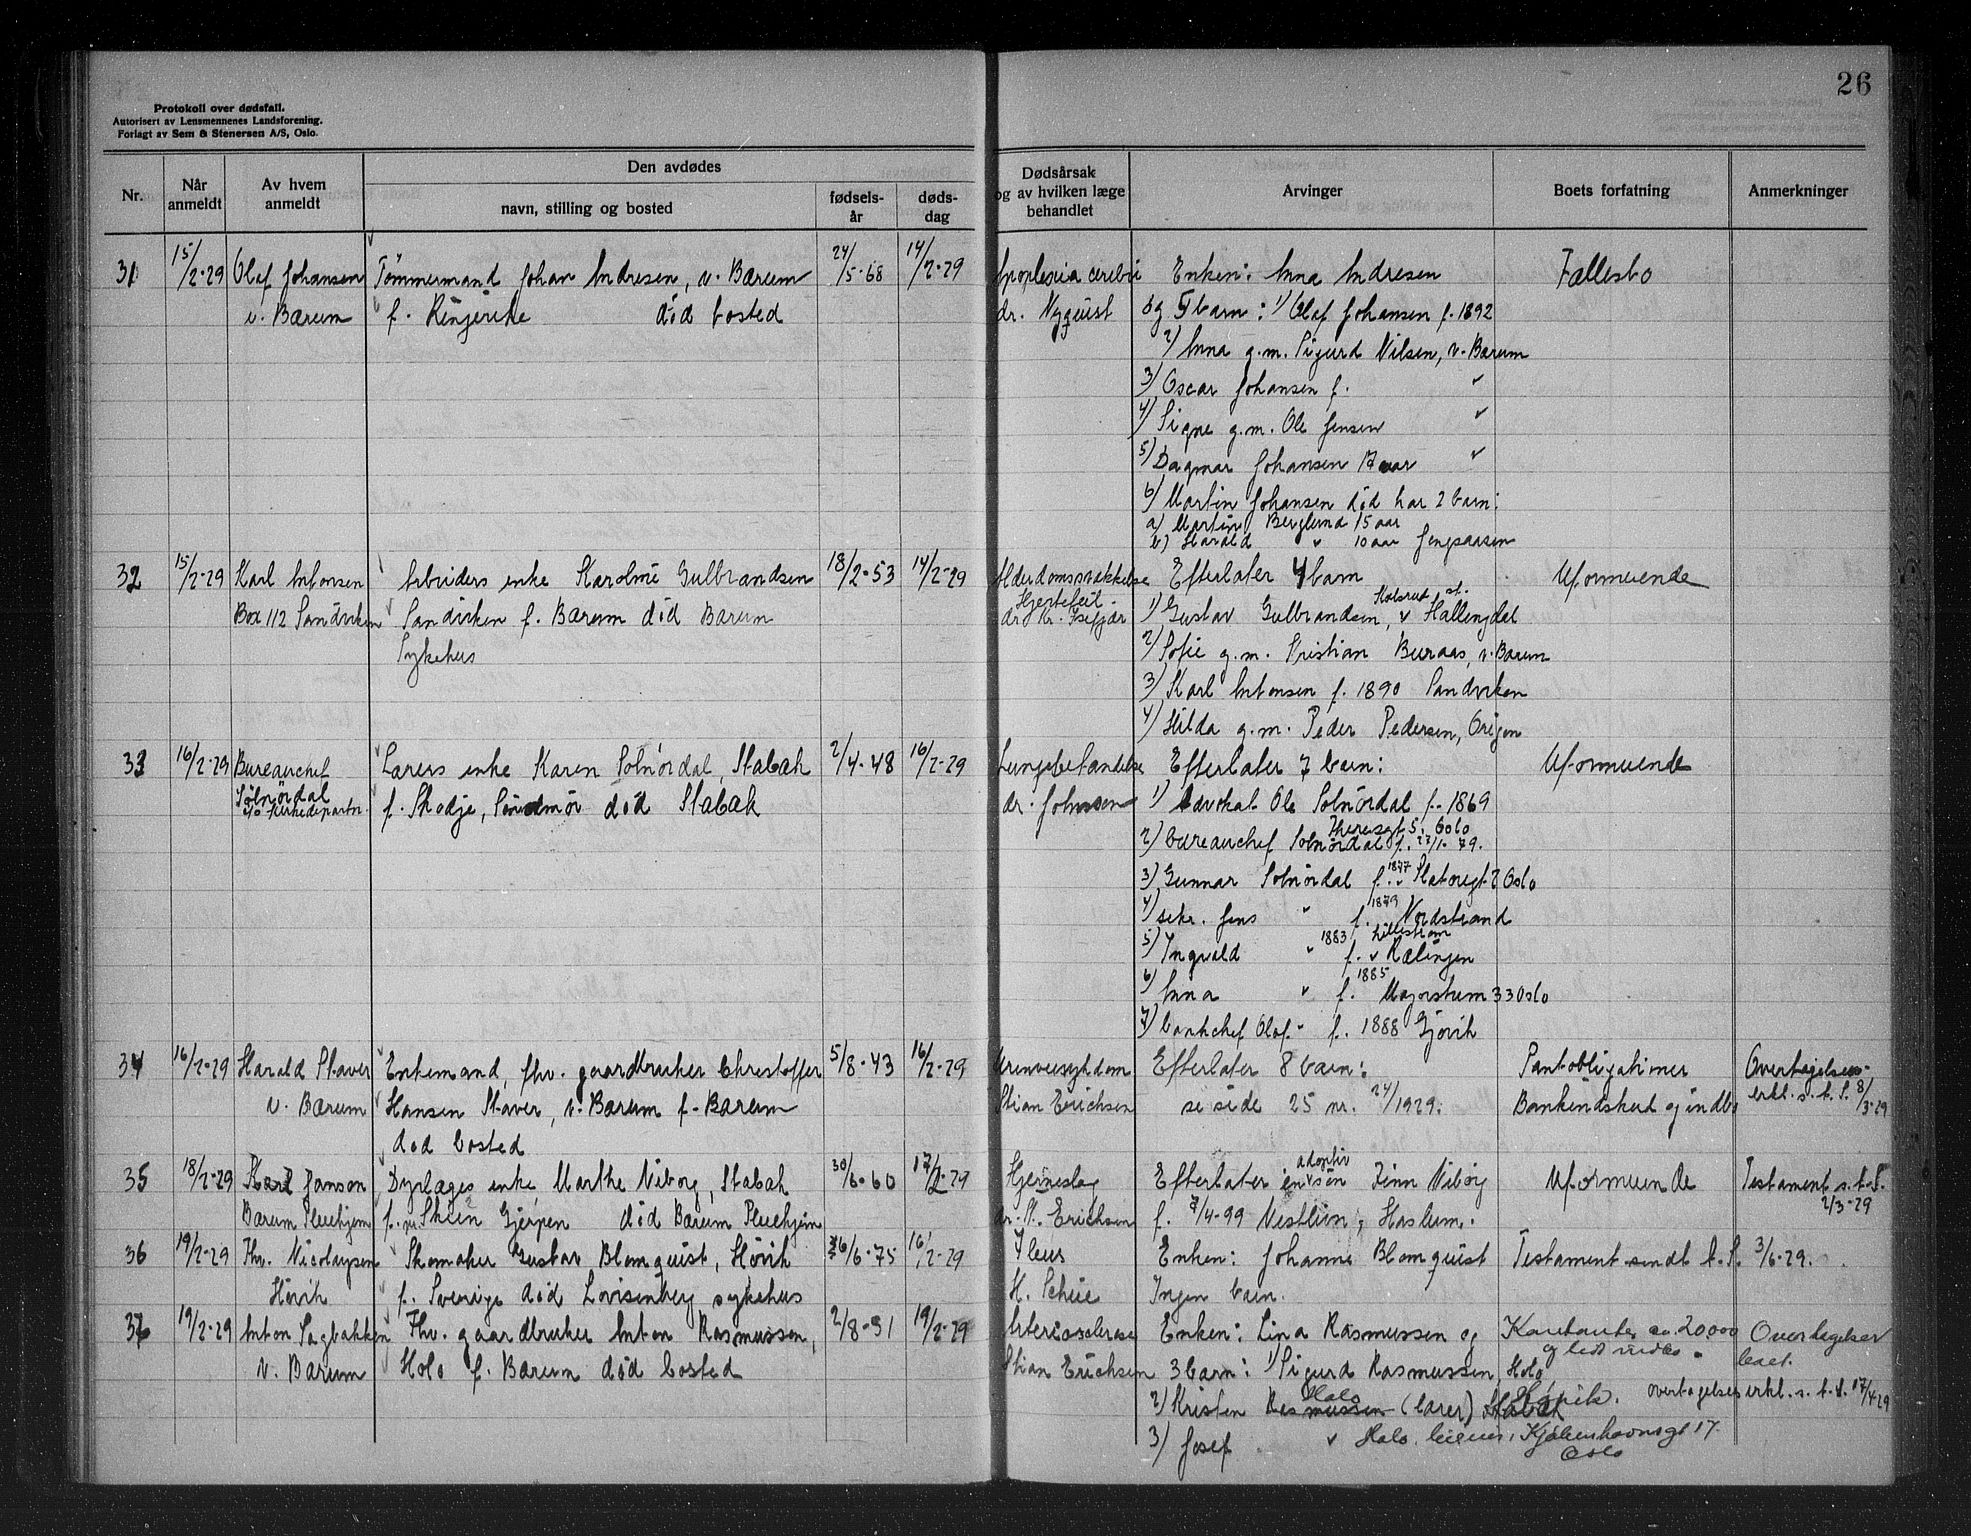 26
Protokoll over dødsfall.
Autorisert av Lensmennenes Landsforening.
Forlagt av Sem & Stenersen A/S, Oslo.
Nr.
Når anmeldt
Av hvem anmeldt
Den avdødes
navn, stilling og bosted
fødsels-år
døds-dag
Dødsårsak og av hvilken læge behandlet
Arvinger
Boets forfatning
Anmerkninger
31 15/2-29 Olaf Johansen Tömmermand Johan Andresen, v. Bærum 24/5-68 14/2-29 Apoplexia cerebri Enken: Anna Andresen Fællesbo
v. Bærum f. Ringerike död bosted dr. Nyquist og barn: 1) Olaf Johansen f. 1892
2) Anna g.m. Sigurd Nilsen, v. Bærum
3) Oscar Johansen f. "
4) Signe g.m. Ole Jensen "
5) Dagmar Johansen 17 aar "
6) Martin Johansen död har 2 barn:
a) Martin Berglund 15 aar
b) Harald " 10 aar
32 15/2-29 Karl Antonsen Arbeiders enke Karoline Gulbrandsen 18/2-53 14/2-29 Alderdomssvækkelse Efterlater 4 barn Uformuende
Hjertefeil
Box 112 Sandviken Sandviken f. Bærum död Bærum dr. Kr. 1) Gustav Gulbrandsen, v Hallingdal
Sykehus 2) Sofie g.m. Kristian Buraas, v. Bærum
3) Karl Antonsen f. 1890 Sandviken
4) Hilda g.m. Peder Pedersen, Origon
33 16/2-29 Bureauchef Lærers enke Karen Solnördal, Stabæk 2/4-48 16/2-29 Lungebetændelse Efterlater 7 barn: Uformuende
Solnördal
c/o Kirkedepartm. f. Skodje, Söndmör död Stabæk dr. Johnsen 1) Advokat Ole Solnördal f. 1869
Theresegt 5. Oslo
2) bureauchef Solnördal f. 22/1-79.
3) Gunnar Solnördal f. 1877 Oslo
4) sekr. Jens " f. 1879 Nordstrand
5) Ingvald " 1883 f. v Rælingen
Lillestrøm
6) Anna " f. 1885 Majorstuen 33 Oslo
7) bankchef Olaf " f. 1888 Gjövik
34 16/2-29 Harald Staver Enkemand, fhv. gaardbruker Christoffer 5/8-43 16/2-29 Urinveissykdom Efterlater 8 barn: Pantobligationer Overtagelses-
v. Bærum Hansen Staver, v. Bærum f. Bærum Stian Erichsen se side 25 nr. 24/1929. Bankindskud og indbo erkl. s.t.S. 8/3-29
död bosted
35 18/2-29 Karl Janson Dyrlæges enke Marthe Viborg, Stabæk 30/6-60 17/2-29 Hjerneslag Efterlater en adoptiv sön Finn Viborg Uformuende Testament s.t.S.
2/3-29
Bærum Pleiehjem f. nr. Skien Gjerpen död Bærum Pleiehjem dr. St. Erichsen f. 7/4-99 Vestlien, Haslum.
36 19/2-29 Thv. Nicolaysen Skomaker Gustav Blomquist, Hövik 26/6-75 16/2-29 Ileus Enken: Johanne Blomquist Testament sendt t.S. 3/6-29.
Hövik f. Sverige död Lovisenberg sykehus H. Scheie Ingen barn.
37 19/2-29 Anton Sagbakken Fhv. gaardbruker Anton Rasmussen, 2/8-51 19/2-29 Arteriosclerose Enken: Lina Rasmussen og Kontanter ca. 20000 Overtagelser
v. Bærum Holo f. Bærum död bosted Stian Erichsen 3 barn: 1) Sigurd Rasmussen, Holo
2) Kristen Rasmussen Holo (lærer) Stabæk Hövik. overtagelseserkl. s.t.S. 17/4-29
3) Josef " Holo, Kjøbenhavnsgt 17.
Oslo